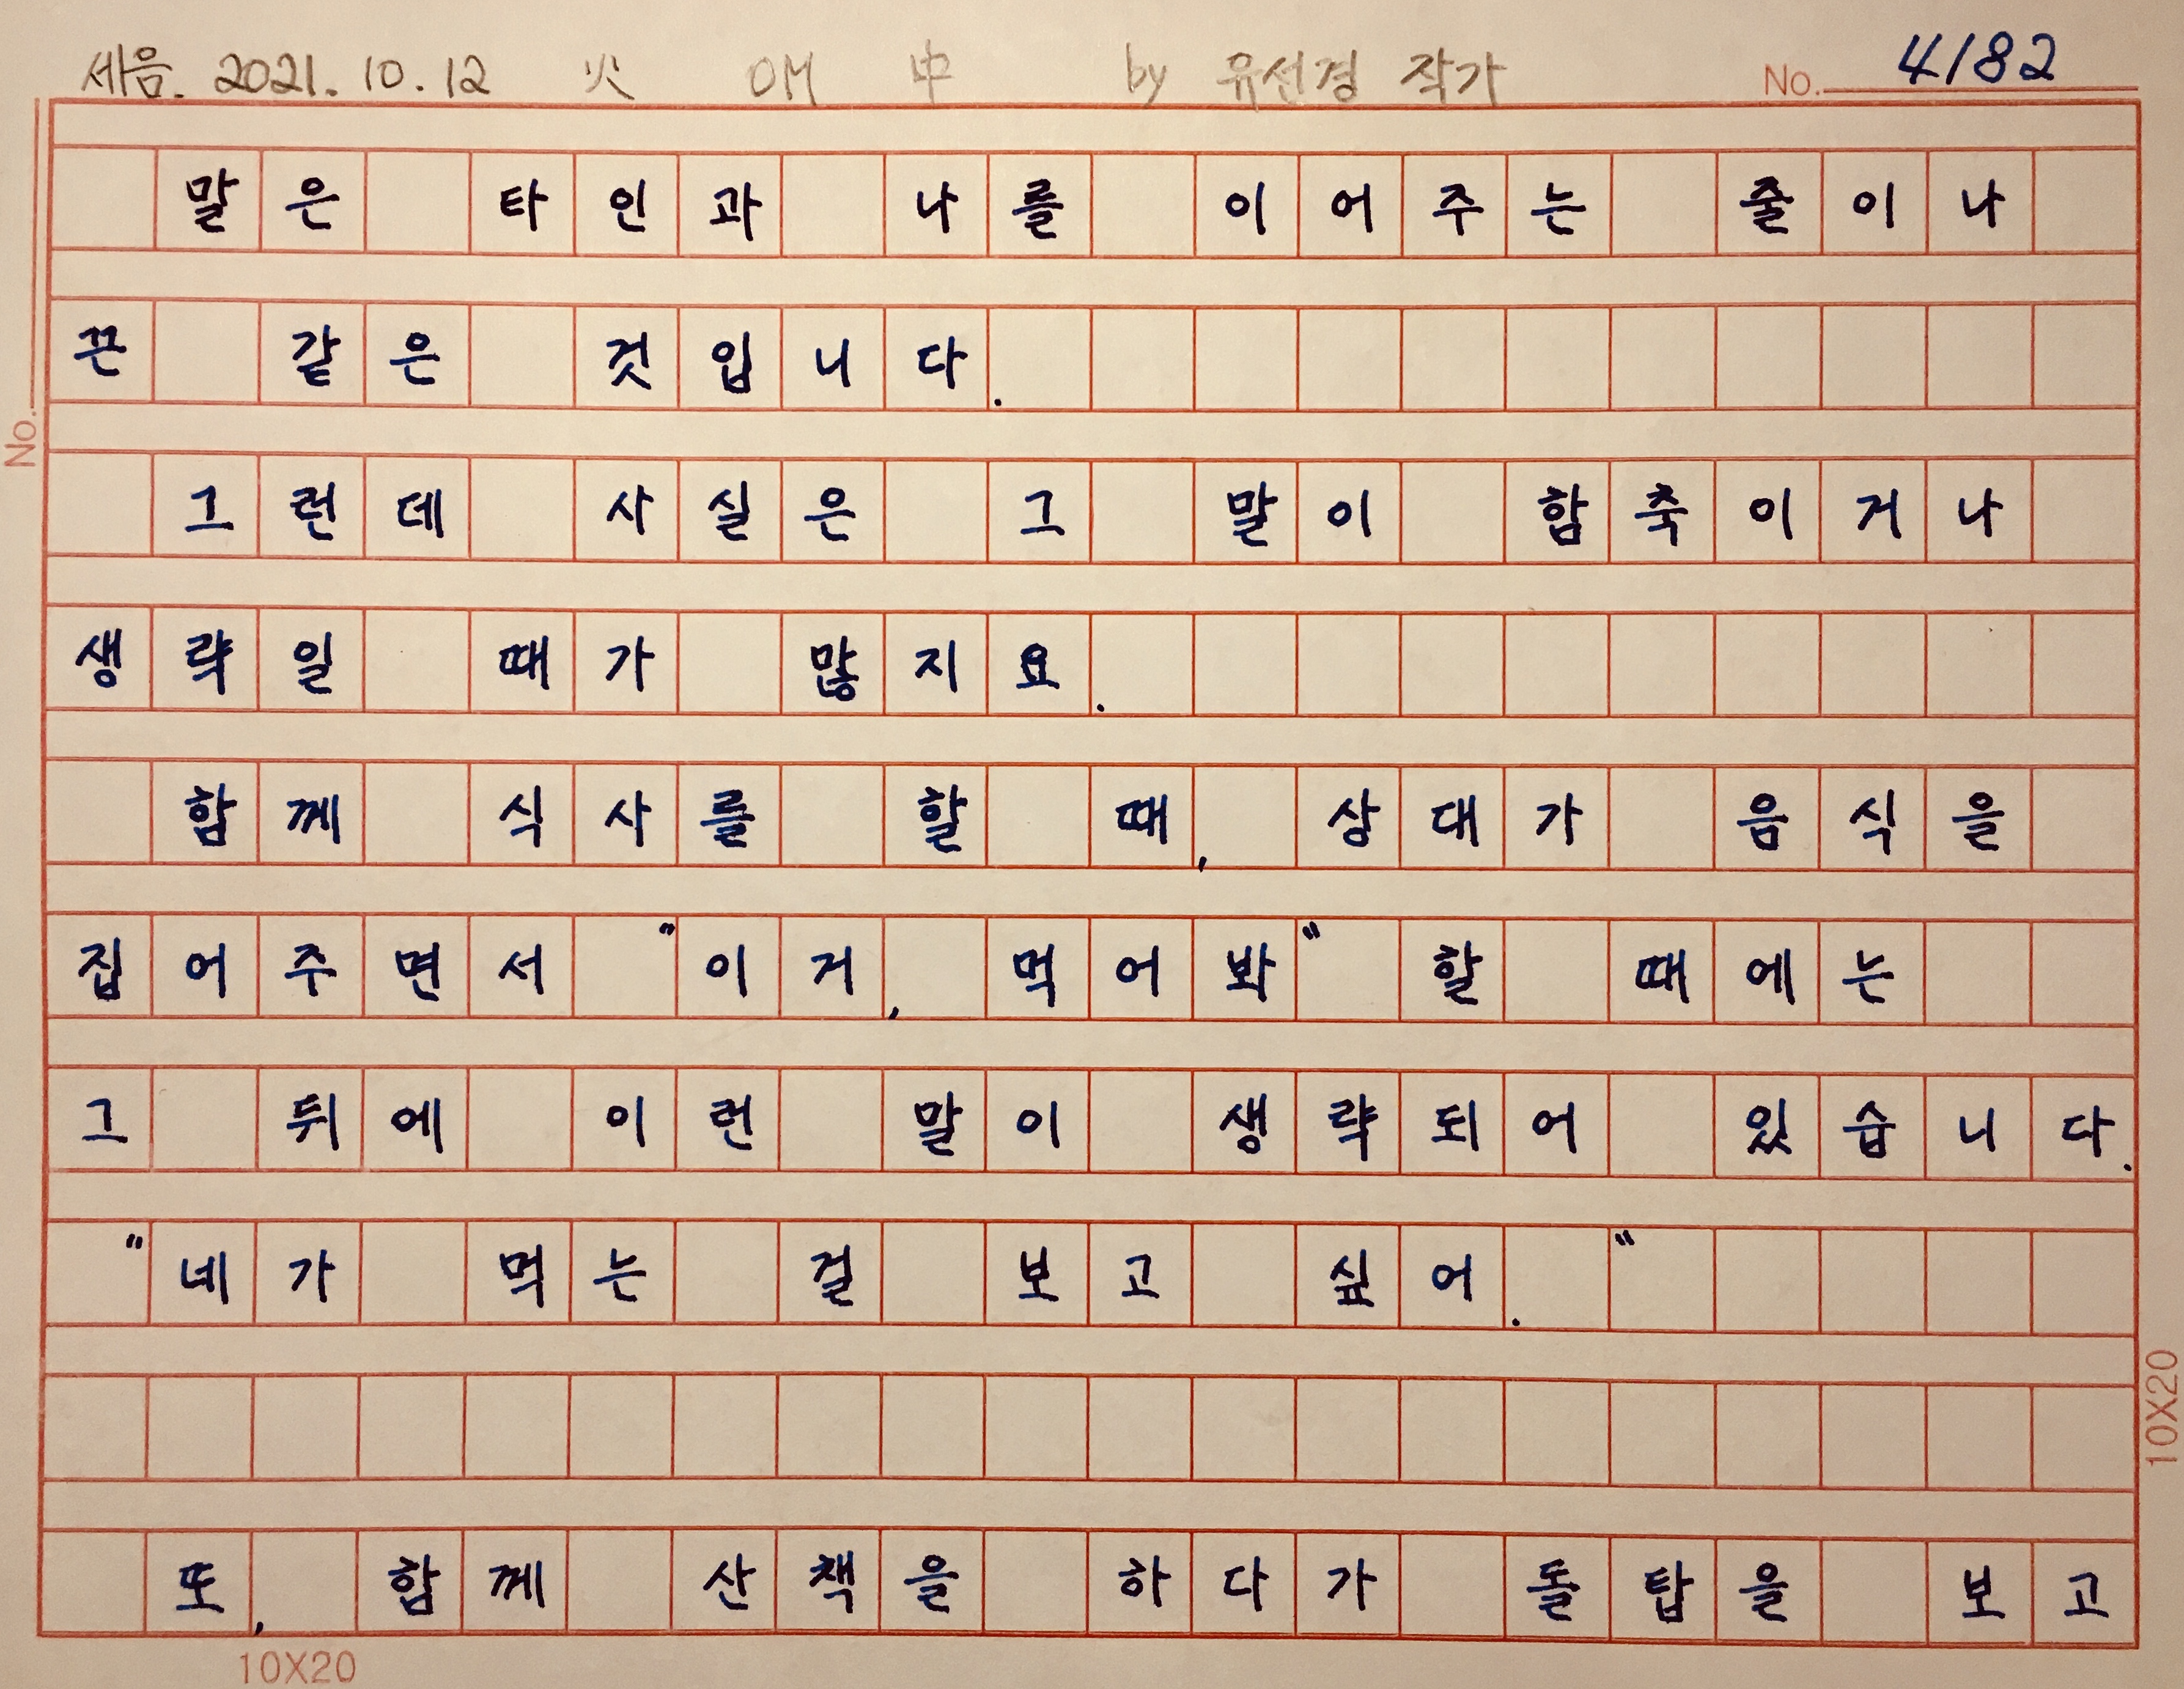 세음. 2021. 10. 12 火 OM 中 by 유선경 작가 No. 4182
말은 타인과 나를 이어주는 줄이나
끈 같은 것입니다.
그런데 사실은 그 말이 함축이거나
생략일 때가 많지요.
함께 식사를 할 때, 상대가 음식을
집어주면서 "이거, 먹어봐" 할 때에는
그 뒤에 이런 말이 생략되어 있습니다.
"네가 먹는 걸 보고 싶어."
또, 함께 산책을 하다가 돌탑을 보고
No.
10X20
10X20